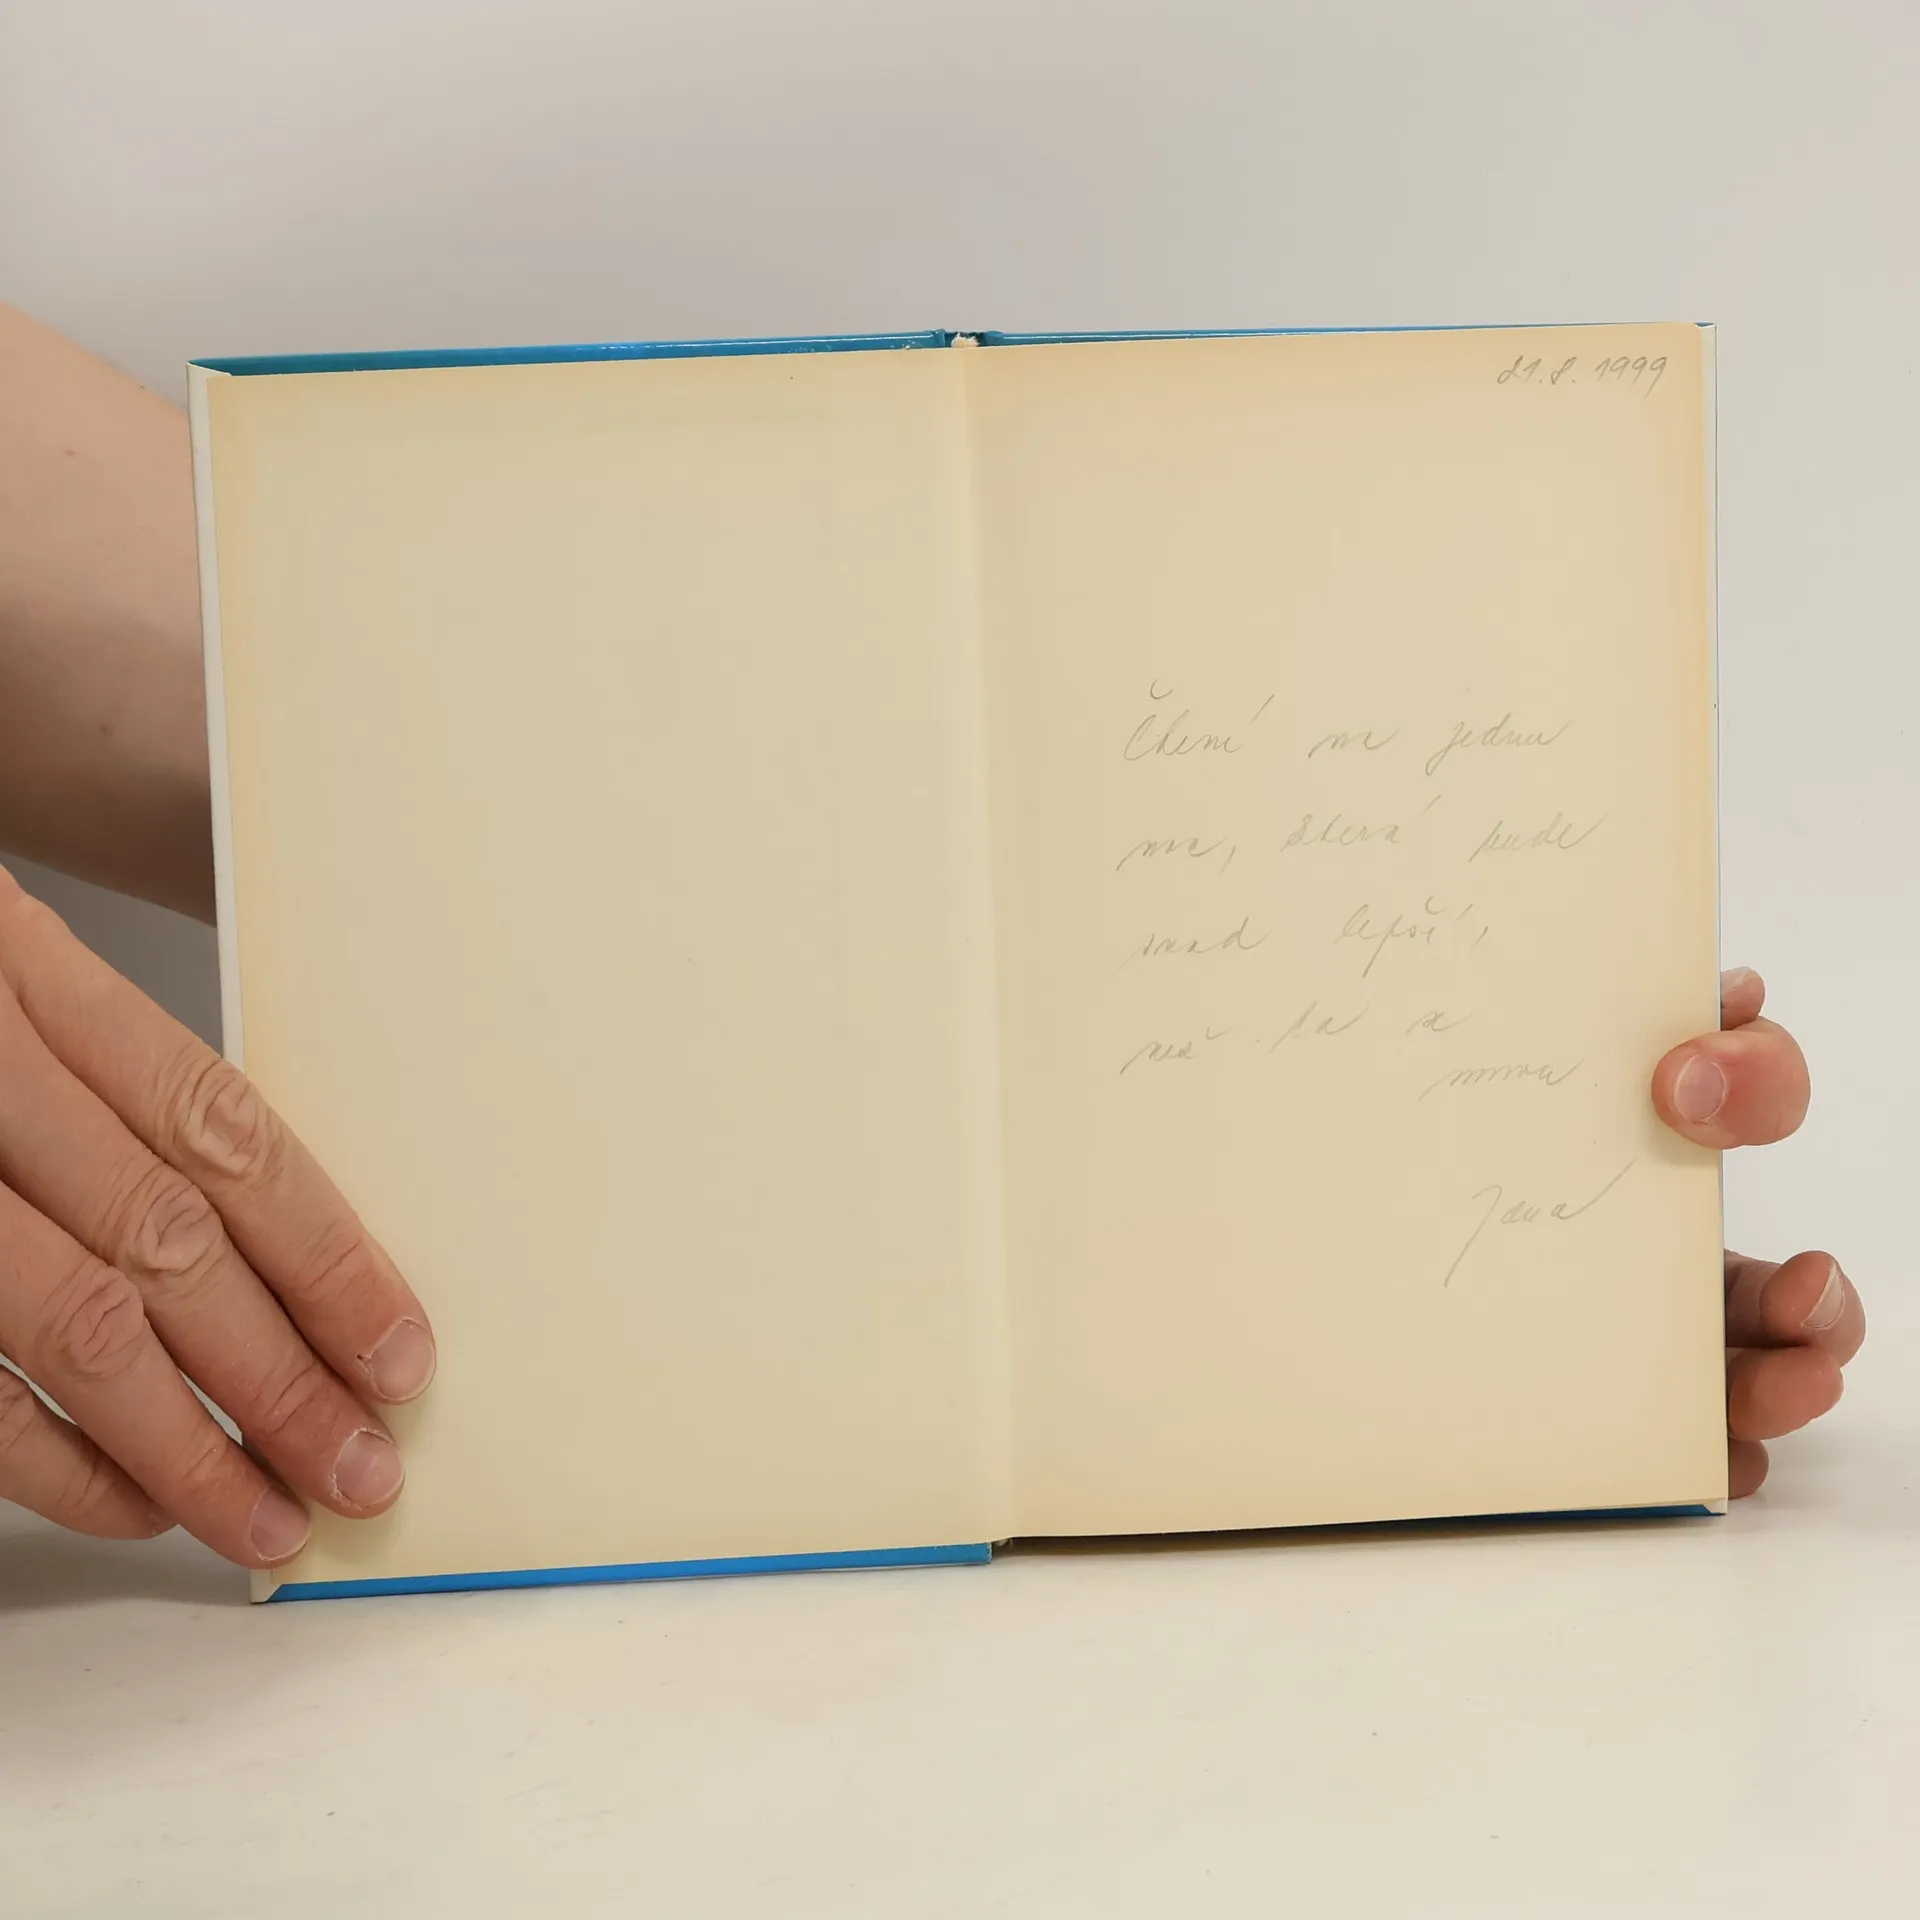 21.8. 1999
Čtení na jednu
noc, která bude
snad lepší,
než ta s
mnou.
Jana